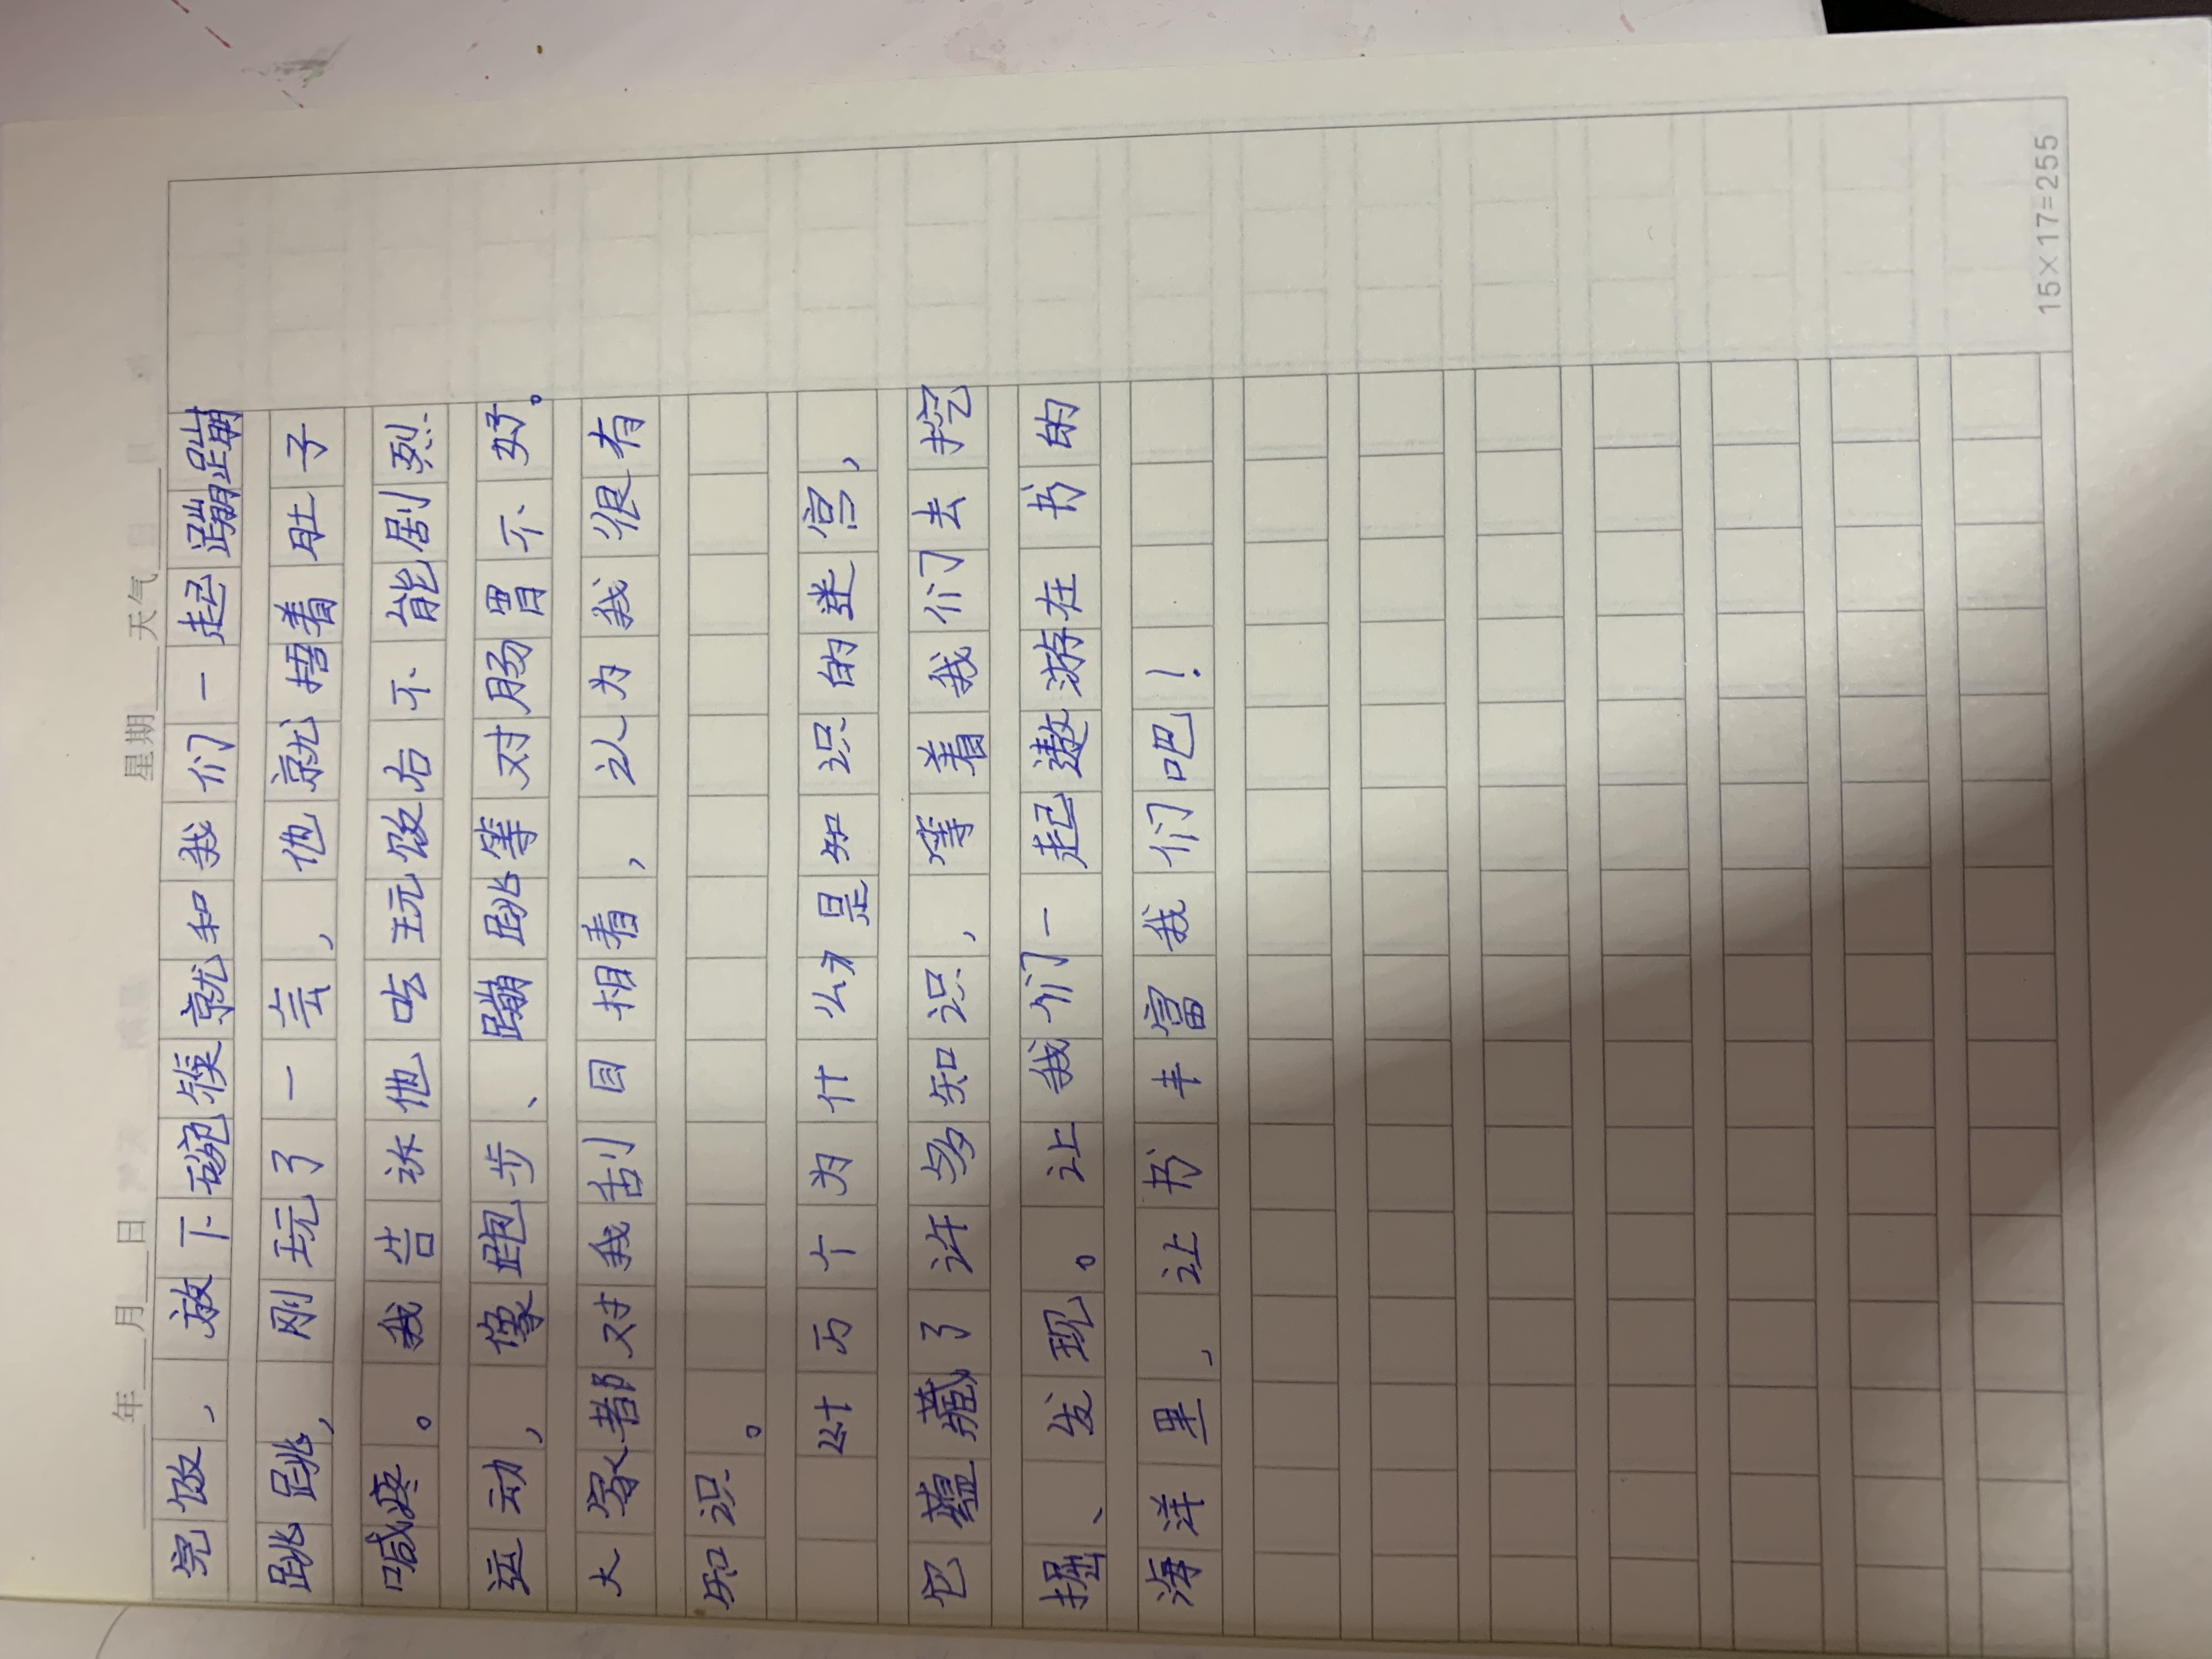 年 月 日 星期 天气
完饭，放下碗筷就和我们一起蹦蹦
跳跳，刚玩了一会，他就捂着肚子
喊疼。我告诉他吃玩饭后不能剧烈
运动，像跑步、蹦跳等对肠胃不好。
大家都对我刮目相看，以为我很有
知识。
十万个为什么是知识的迷宫，
它蕴藏了许多知识，等着我们去挖
掘、发现。让我们一起遨游在书的
海洋里，让书丰富我们吧！
15×17=255